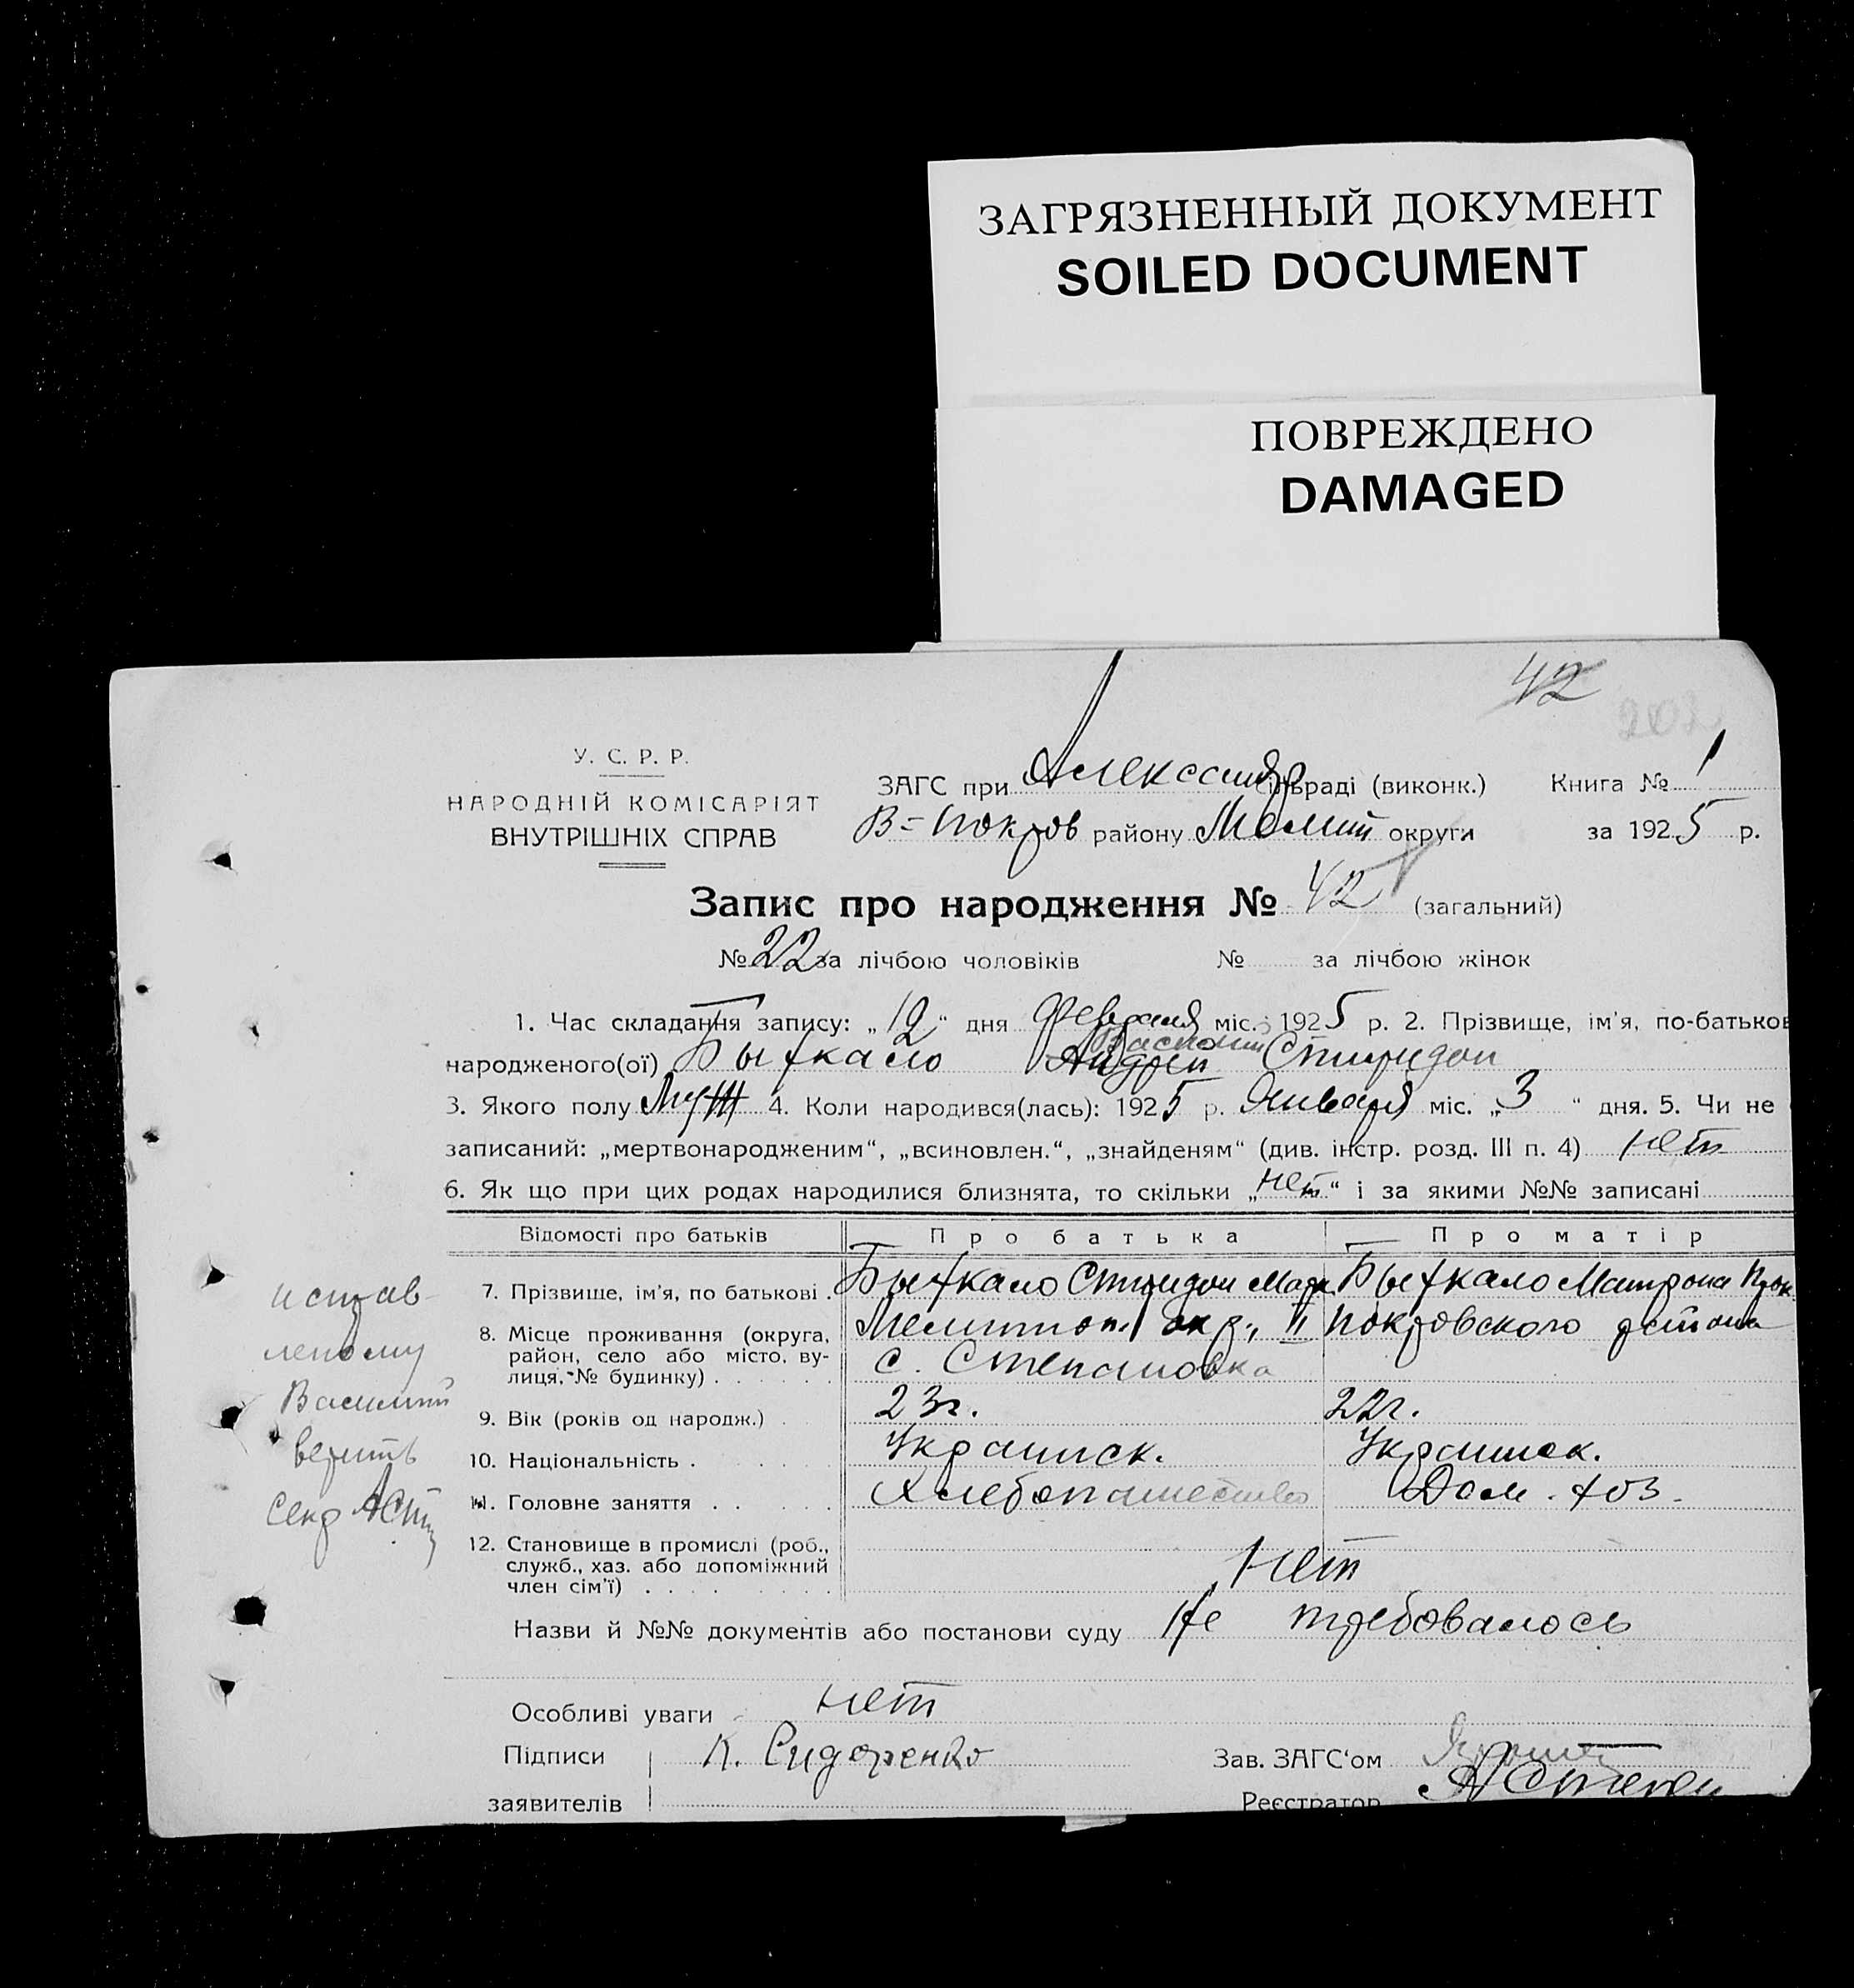 ЗАГРЯЗНЕННЫЙ ДОКУМЕНТ
SOILED DOCUMENT
ПОВРЕЖДЕНО
DAMAGED
42
202
У. С. Р. Р.
НАРОДНІЙ КОМІСАРІЯТ
ВНУТРІШНІХ СПРАВ
ЗАГС при Александр сільраді (виконк.) Книга № 1
В=Покров району Мелит округи за 1925 р.
Запис про народження № 42 (загальний)
№ 22 за лічбою чоловіків № за лічбою жінок
1. Час складання запису: „12“ дня Февраля міс. 1925 р. 2. Прізвище, ім'я, по-батьков
Василий
народженого(ої) Быхкало Андрей Спиридон
3. Якого полу Муж 4. Коли народився(лась): 1925 р. Января міс. „3“ дня. 5. Чи не
записаний: „мертвонародженим“, „всиновлен.“, „знайденям“ (див. інстр. розд. III п. 4) нет
6. Як що при цих родах народилися близнята, то скільки „нет“ і за якими №№ записані
Відомості про батьків Про батька Про матір
7. Прізвище, ім'я, по батькові . Быхкало Спиридон Марк Быхкало Матрона Прок.
8. Місце проживання (округа, район, село або місто, вулиця, № будинку) Мелитоп. окр., II Покровского района
с. Степановка
9. Вік (років од народж.) 23г. 22г.
10. Національність . Украинск. Украинск.
11. Головне заняття . . Хлебопашество Дом. хоз.
12. Становище в промислі (роб.,
служб., хаз. або допоміжний
член сім'ї) нет
Назви й №№ документів або постанови суду Не требовалось
Особливі уваги нет
Підписи К. Сидоренко Зав. ЗАГС'ом
заявителів Реєстратор
исправ-
леному
Василий
верить
Секр